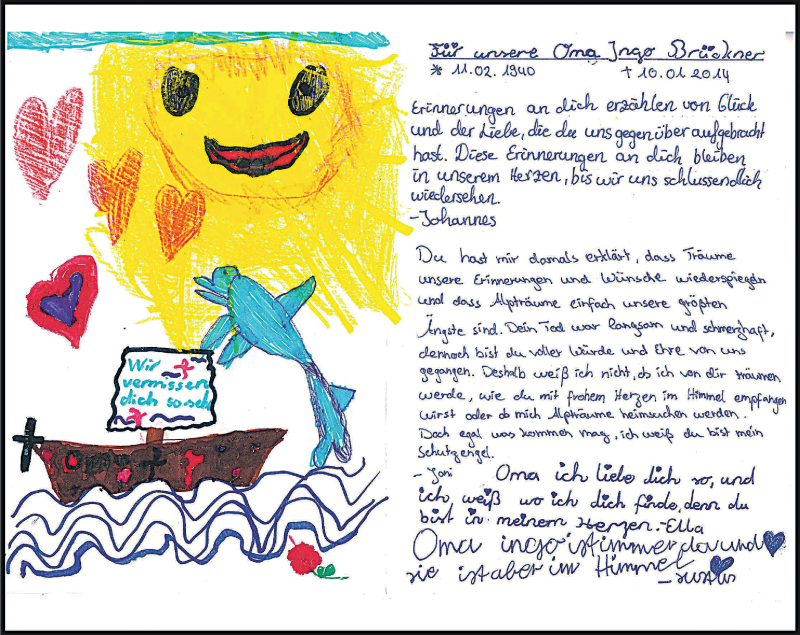 Wir
vermissen
dich so sehr
Oma
Für unsere Oma Ingo Brückner
* 11.02.1940 † 10.01.2014
Erinnerungen an dich erzählen von Glück
und der Liebe, die du uns gegenüber aufgebracht
hast. Diese Erinnerungen an dich bleiben
in unserem Herzen, bis wir uns schlussendlich
wiedersehen.
-Johannes
Du hast mir damals erklärt, dass Träume
unsere Erinnerungen und Wünsche wiederspiegeln
und dass Alpträume einfach unsere größten
Ängste sind. Dein Tod war langsam und schmerzhaft,
dennoch bist du voller Würde und Ehre von uns
gegangen. Deshalb weiß ich nicht, ob ich von dir träumen
werde, wie du mit frohem Herzen im Himmel empfangen
wirst oder ob mich Alpträume heimsuchen werden.
Doch egal was kommen mag, ich weiß du bist mein
Schutzengel.
- Joni
Oma ich liebe dich so, und
ich weiß wo ich dich finde, denn du
bist in meinem Herzen.-Ella
Oma ingo ist immer da und
sie ist aber im Himmel